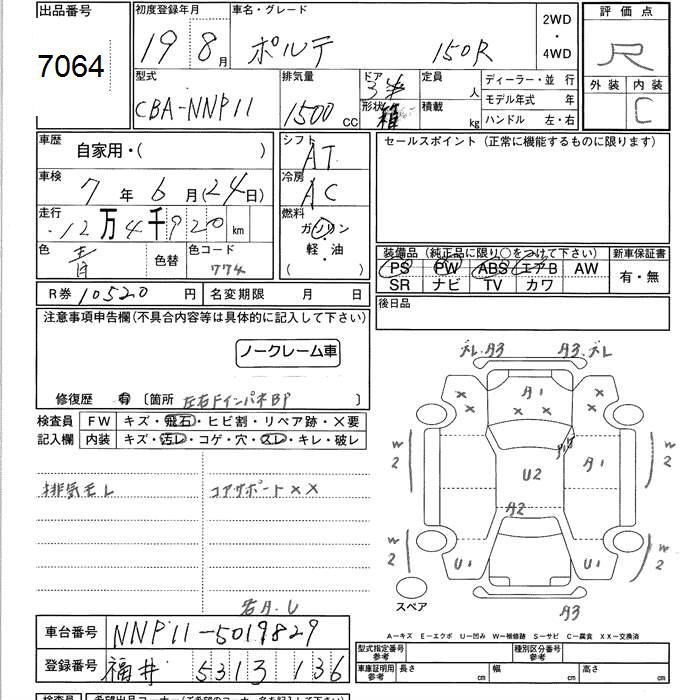 出品番号 初度登録年月 車名・グレード 2WD・4WD 評価点
7064 19 8月 ポルテ 150R R
型式 排気量 ドア 定員 人 ディーラー・並 行 外装 内装
CBA-NNP11 1500 CC 形状 箱 積載 kg モデル年式 年 C
ハンドル 左・右
車歴 自家用・( ) シフト AT セールスポイント (正常に機能するものに限ります)
車検 7年 6月(24日) 冷房 AC
走行 12万4千920km 燃料 ガソリン
色 青 色替 色コード 774 軽・油 ( )
装備品 (純正品に限り○をつけて下さい) 新車保証書
PS PW ABS エアB AW 有・無
SR ナビ TV カワ
R券 10520円 名変期限 月 日 後日品
注意事項申告欄(不具合内容等は具体的に記入して下さい)
ノークレーム車
修復歴 有 〔箇所 左右FインパネBP 〕
検査員 FW キズ・飛石・ヒビ割・リペア跡・×要
記入欄 内装 キズ・汚レ・コゲ・穴・スレ・キレ・破レ
排気モレ コアサポート××
ズレ A3 A3 ズレ
× × A1 × × × ×
W2 A1 W2
U2
A2
W2 U1 U1 W2
スペア A3
A-キズ E-エクボ U-凹み W-補修跡 S-サビ C-腐食 XX-交換済
車台番号 NNP11-5019829
登録番号 福井 531 3 136
型式指定番号 参考 種別区分番号 参考
車庫証明用 参考 長さ 幅 高さ
検査員 希望出品コーナー(ご希望のコーナー名を記入して下さい)